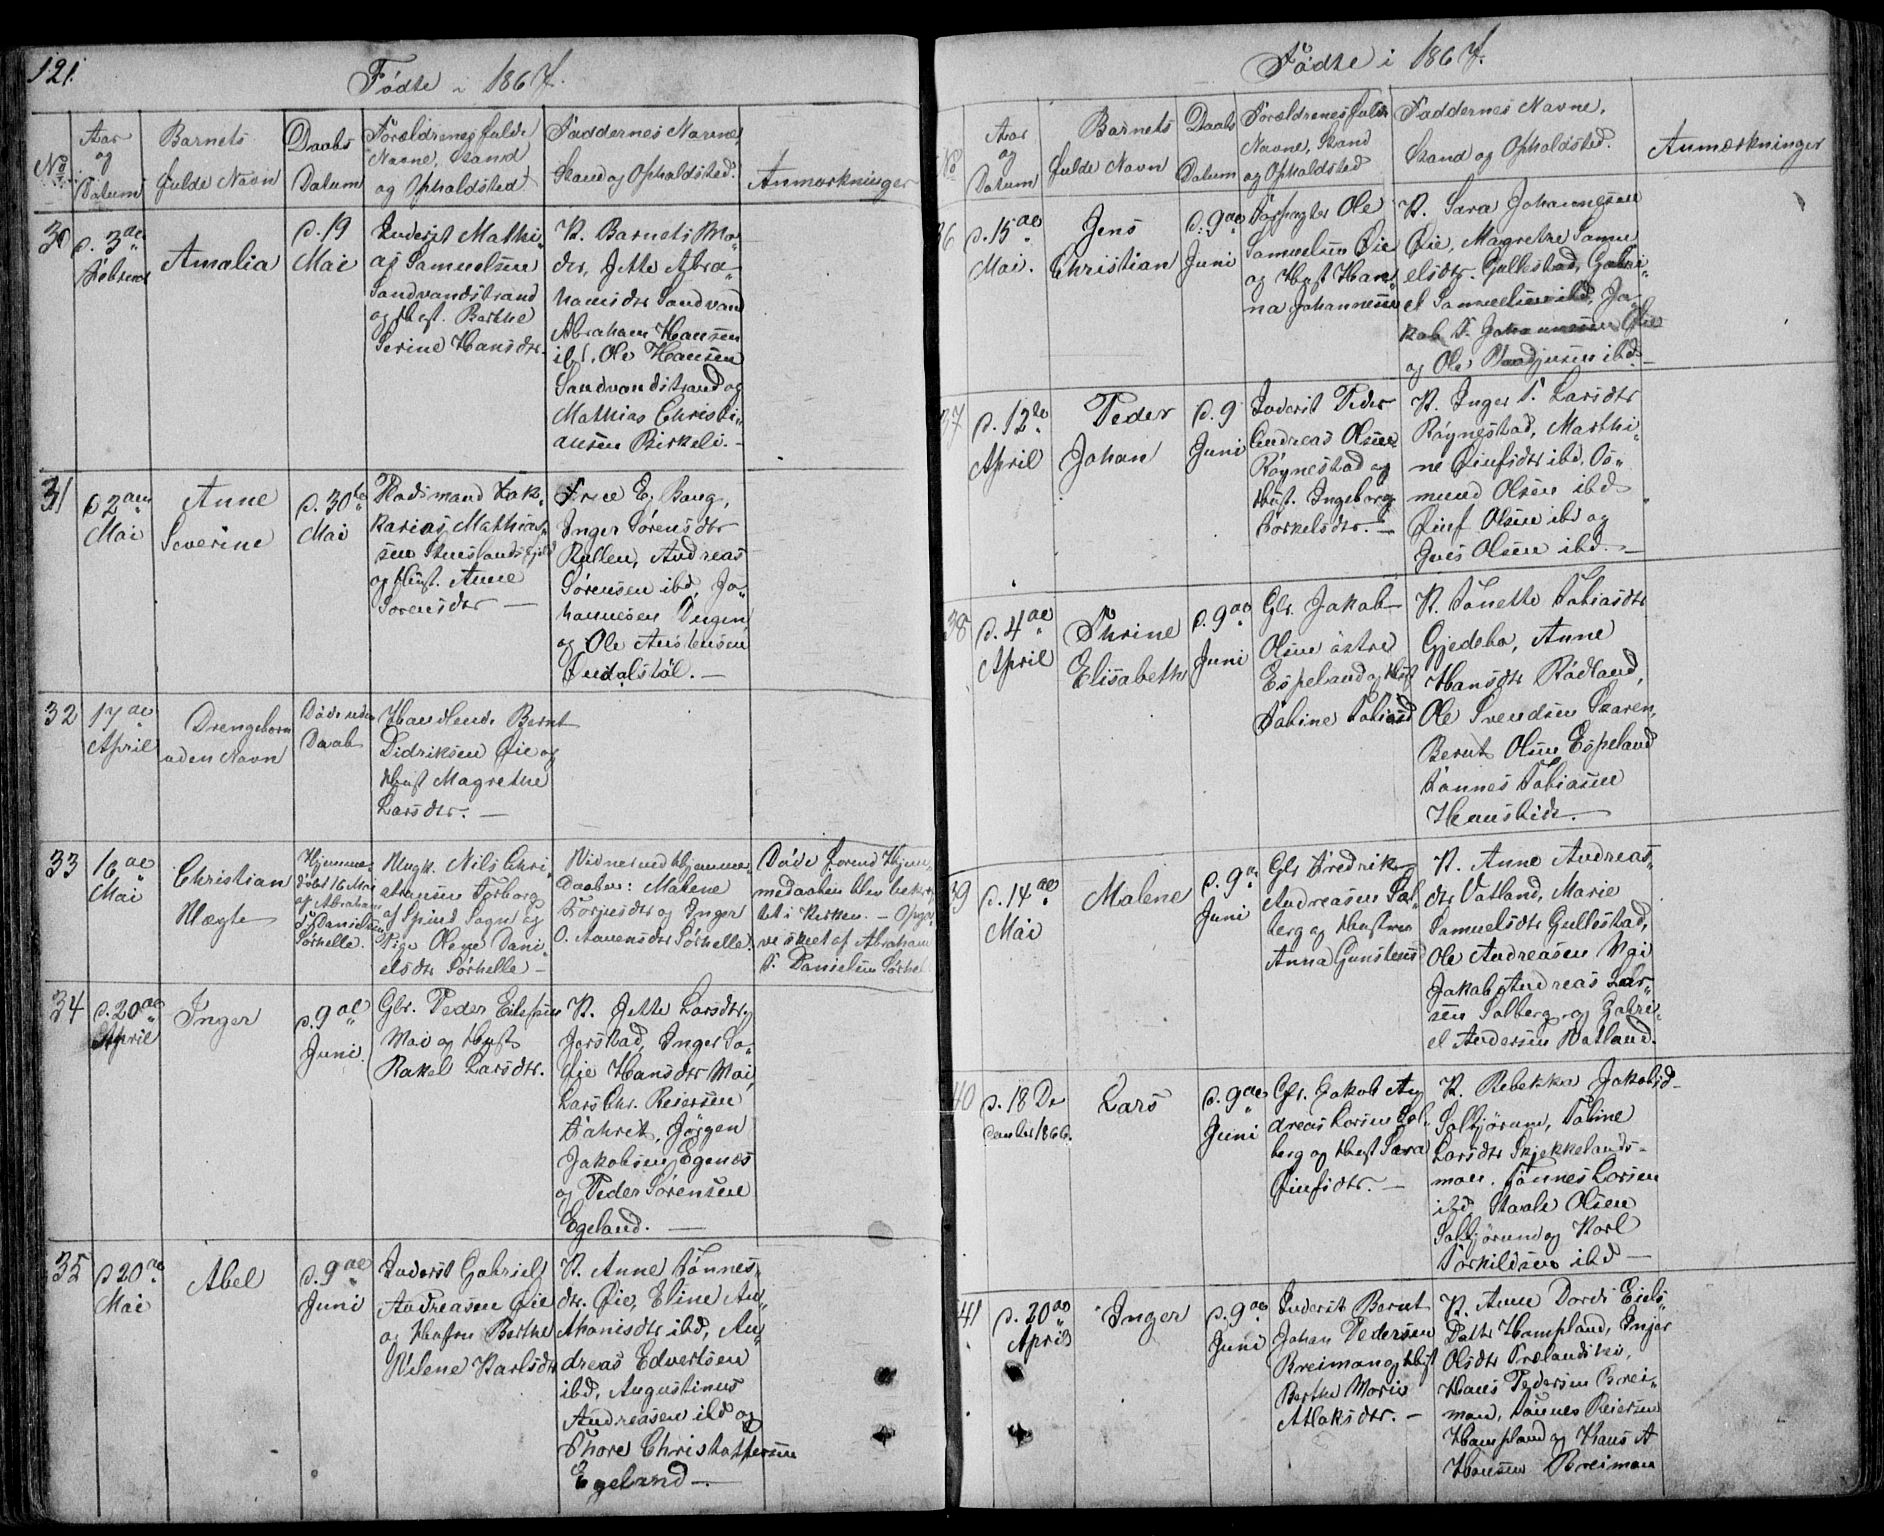 121.
Födte i 1867.
No
Aar
og
Datum
Barnets
fulde Navn
Daabs
Datum
Forældrenes fulde
Navne, Stand
og Opholdsted
Faddernes Navne,
Stand og Opholdsted.
Anmærkninger
30
d. 3die
Februar
Amalia
d. 19
Mai
Inderst Mathi-
as Samuelsen
Sandvandstrand
og Hust. Berthe
Serine Hansdtr.
K. Barnets Mo-
der, Jette Abra-
hamsdtr Sandvand
Abraham Hansen
ibd, Ole Hansen
Sandvandstrand og
Mathias Christi-
ansen Birkeli. -
31
d 2den
Mai
Anne
Severine
d. 30te
Mai
Pladsmand Zak-
karias Mathias-
sen Stenslandsfjeld
og Hust. Anne
Sörensdtr -
Frue E. Bang,
Inger Sörensdtr
Rullen, Andreas
Sörensen ibd, Jo-
hannesen
og Ole Austensen
-
32
17de
April
Drengebarn
uden Navn
Döde uden
Daab
Handlende Bernt
Didriksen Öie og
Hust Magrethe
Larsdtr. -
33
16de
Mai
Christian
Hjemme-
döbt 16 Mai
af Abraham
T. Danielsen
Sörhelle.
Ungk. Nils Chri-
stensen Forberg
af Spind Sogn og
Pige Olene Dani-
elsdtr Sörhelle -
Vidner ved Hjemme-
daaben: Malene
Torjusdtr og Inger
O. Aanensdtr Sörhelle.
Döde forend Hjem-
medaaben blev bekræf-
tet i Kirken. - Opgi-
ve skeet af Abraham
T. Danielsen Sörhel
34
d. 20de
April
Inger
d. 9de
Juni.
Gbr. Peder Eilefsen
Moi og Hust
Rakel Larsdtr.
K. Jette Larsdtr
Jerstad, Inger So-
fie Hansdtr Moi,
Lars Chr. Reiersen
Fahret, Jörgen
Jakobsen Egenes
og Peder Sörensen
Egeland. -
35
d 20de
Mai
Abel
d. 9de
Juni
Inderst Gabriel
Andreasen Öie
og Hustru Berthe
Vilene Karlsdtr
K. Anne Tönnes-
dtr. Öie, Eline An-
thonisdtr ibd, An-
dreas Edvertsen
ibd, Augustinus
Andreasen ibd og
Thore Christoffersen
Egeland -
Födte i 1867.
No
Aar
og
Datum
Barnets
fulde Navn
Daabs
Datum
Forældrenes fulde
Navne, Stand
og Opholdsted
Faddernes Navne,
Stand og Opholdsted.
Anmærkninger
36
d. 15de
Mai.
Jens
Christian
d. 9de
Juni
Forpagter Ole
Samuelsen Öie
og Hust Han-
na Johannesen
K. Sara Johannesen
Öie, Magrethe Samu-
elsdtr. Gullestad, Gabri-
el Samuelsen ibd, Ja-
kob T. Johannessen Öie
og Ole ibd. -
37
d. 12te
April
Peder
Johan
d. 9
Juni
Inderst Peder
Andreas Olsen
Röynestad og
Hust. Ingeborg
Torkelsdtr. -
K. Inger T. Larsdtr
Röynestad, Marthi-
ne Öiufsdtr ibd, Os-
mund Olsen ibd
Öiuf Olsen ibd og
Jens Olsen ibd. -
38
d. 4de
April
Thrine
Elisabeth
d. 9de
Juni
Gbr. Jakob
Olsen östre
Espeland og Hust
Tabine Tobiasd
K. Tönette Tobiasdtr
Gjedebo, Anne
Hansdtr Rödland,
Ole Svendsen Skaren,
Bernt Olsen Espeland
Tönnes Tobiasen
-
39
d. 14de
Mai
Malene
d. 9de
Juni
Gbr Fredrik
Andreasen Sol-
berg og Hustru
Anna Gunstensd
K. Anne Andreas-
dtr Vatland, Marie
Samuelsdtr Gullestad,
Ole Andreasen Moi
Jakob Andreas Lar-
sen Solberg og Gabri-
el Andersen Vatland.
40
d. 18 De-
cember 1866.
Lars
d. 9de
Juni
Gbr. Jakob An-
dreas Larsen Sol-
berg og Hust Sara
Öiufsdtr. -
K. Rebekka Jakobsd-
Salhjörum, Tobine
Larsdtr Skjekkelands-
moen. Tönnes Larsen
ibd, Staale Olsen
Salhjörund og Karl
Torkildsen ibd -
41
d. 20de
April
Inger
d. 9de
Juni
Inderst Bernt
Johan Pedersen
Breimon og Hust
Berthe Marie
Atlaksdtr. -
K. Anne Dorde Eiels-
Datter Hompland, Inger
Olsdtr
Hans Pedersen Brei-
mon, Tönnes Reiersen
Hompland og Hans A
Hansen Breimon